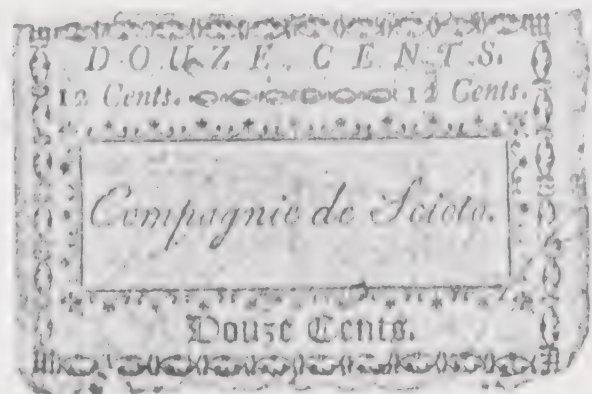 DOUZE CENTS.
12 Cents. 12 Cents.
Compagnie de Scioto.
Douze Cents.